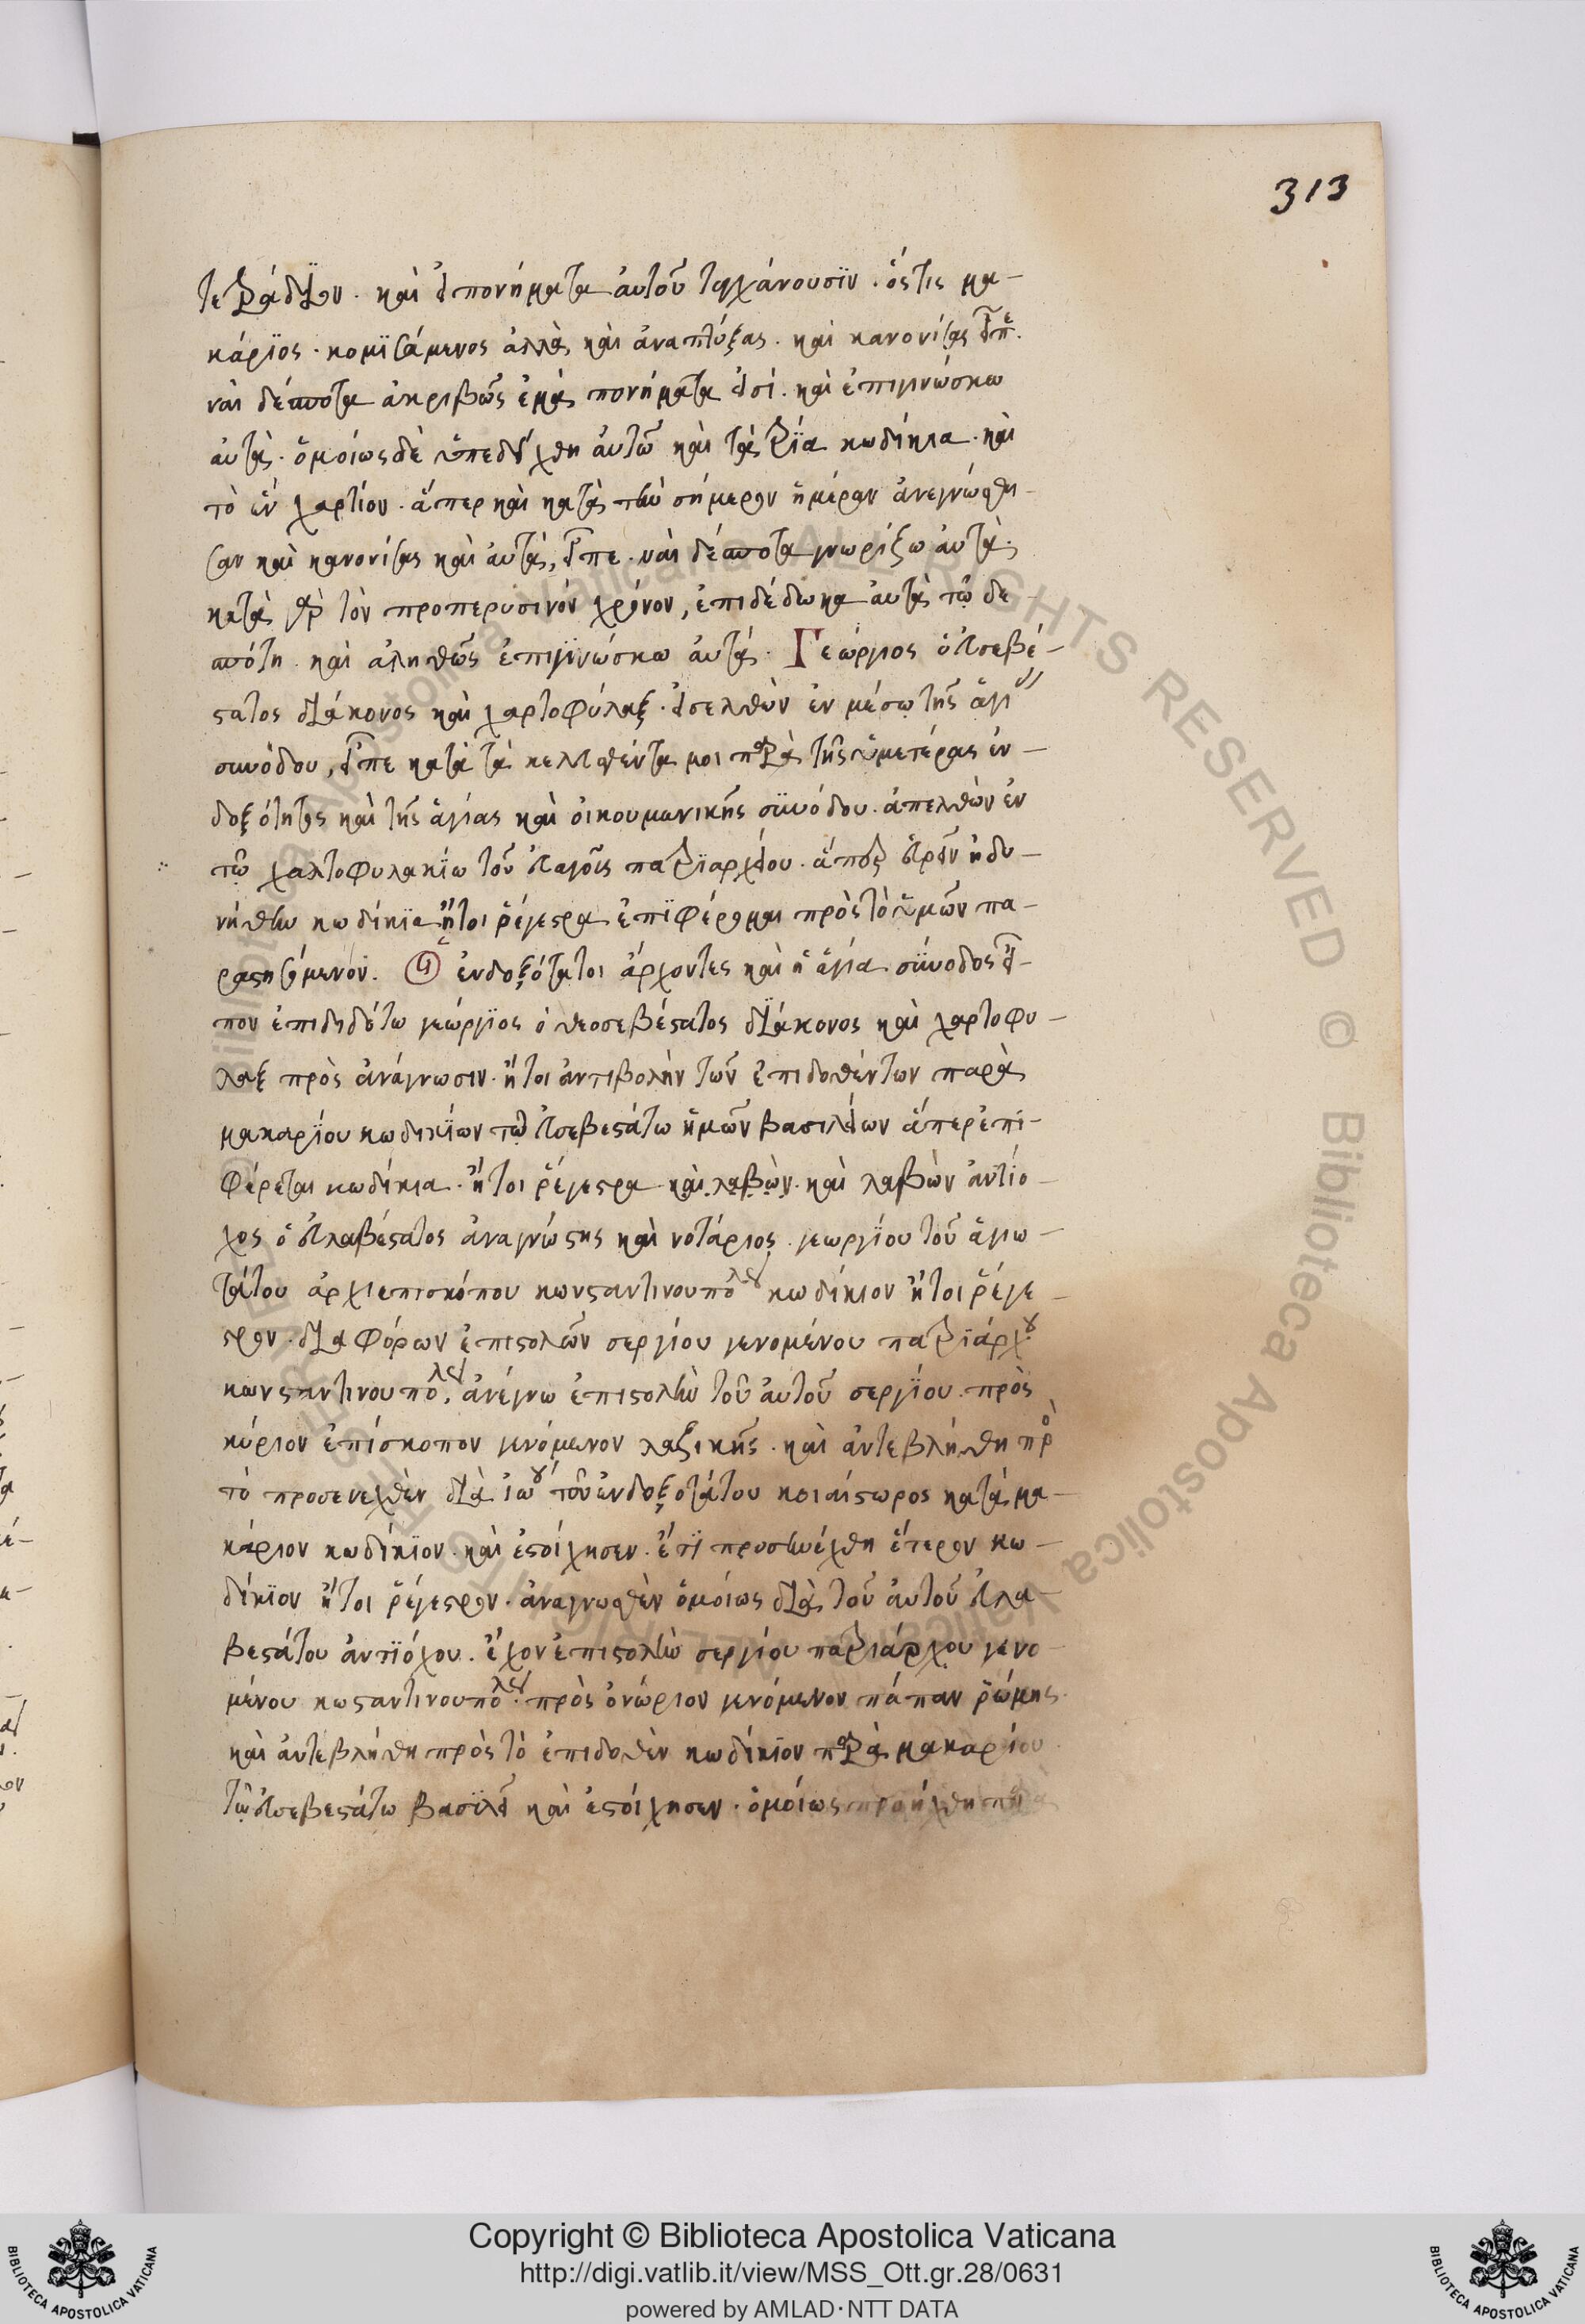 313
τετράδϊον. καὶ εἰ πονήματα αὐτοῦ τυγχάνουσϊν. ὅστις μα-
κάρϊος. κομϊσάμενος ἀλλὰ καὶ ἀναπτύξας. καὶ κανονίσας εἶπε.
ναὶ δέσποτα ἀκριβῶς ἐμὰ πονήματα εἰσί. καὶ ἐπιγινώσκω
αὐτὰ. ὁμοίως δὲ ὑπεδείχθη αὐτῶ καὶ τὰ τρΐα κωδίκια. καὶ
τὸ ἓν χαρτίον. ἅπερ καὶ κατὰ τὴν σήμερον ἡμέραν ἀνεγνώσθη-
σαν καὶ κανονίσας καὶ αὐτὰ, εἶπε. ναὶ δέσποτα γνωρίζω αὐτὰ.
κατὰ γὰρ τὸν προπερυσινὸν χρόνον, ἐπιδέδωκα αὐτὰ τῶ δε-
σπότη. καὶ ἀληθῶς ἐπιγινώσκω αὐτά. Γεώργιος ὁ εὐσεβέ-
στατος διάκονος καὶ χαρτοφύλαξ. εἰσελθὼν ἐν μέσω τῆς ἁγίας
συνόδου, εἶπε κατὰ τὰ κελευσθέντα μοι παρὰ τῆς ὑμετέρας ἐν-
δοξότητος καὶ τῆς ἁγίας καὶ οἰκουμενικῆς συνόδου. ἀπελθὼν ἐν
τῶ χαλτοφυλακίω τοῦ εὐαγοῦς πατρϊαρχείου. ἅπερ εὑρεῖν ἠδυ-
νήθην κωδίκϊα ἤτοι ῥέγεστρα ἐπϊφέρομαι πρὸς τὸ ὑμῶν πα-
ραστησόμενον. οἱ ἐνδοξότατοι ἄρχοντες καὶ ἡ ἁγία σύνοδος εἶ-
πον ἐπιδιδότω γεώργϊος ὁ θεοσεβέστατος διάκονος καὶ χαρτοφυ-
λαξ πρὸς ἀνάγνωσιν. ἤτοι ἀντιβολὴν τῶν ἐπιδοθέντων παρὰ
μακαρϊου κωδικίων τῶ εὐσεβεστάτω ἡμῶν βασιλείων ἅπερ ἐπι-
φέρεται κωδίκια. ἤτοι ῥέγεστρα καὶ λαβὼν. καὶ λαβὼν ἀντίο-
χος ὁ εὐλαβέστατος ἀναγνώστης καὶ νοτάριος. γεωργϊου τοῦ ἁγιω-
τάτου ἀρχιεπισκόπου κωνσταντινουπόλεως κωδίκιον ἤτοι ῥέγε-
στρον. διαφόρων ἐπιστολῶν σεργίου γενομένου πατρϊάρχου
κωνσταντινουπόλεως, ἀνέγνω ἐπιστολὴν τοῦ αὐτοῦ σεργϊου. πρὸς
κύριον ἐπίσκοπον γενόμενον λαζικῆς. καὶ ἀντεβλήθη πρὸς
τὸ προσενεχθὲν διὰ ἰωάννου τοῦ ἐνδοξοτάτου κοιαίστωρος κατὰ μα-
κάριον κωδίκϊον. καὶ ἐστοίχησεν. ἔτϊ προσηνέχθη ἕτερον κω-
δίκϊον ἤτοι ῥέγεστρον. ἀναγνωσθὲν ὁμοίως διὰ τοῦ αὐτοῦ εὐλα-
βεστάτου ἀντϊόχου. ἔχον ἐπιστολὴν σεργίου πατριάρχου γενο-
μένου κωσταντινουπόλεως. πρὸς ὀνώριον γενόμενον πάπαν ῥώμης.
καὶ ἀντεβλήθη πρὸς τὸ ἐπιδοθὲν κωδίκϊον παρὰ μακαρίου
τῶ εὐσεβεστάτω βασϊλεῖ καὶ ἐστοίχησεν. ὁμοίως προήχθη παρὰ
Copyright © Biblioteca Apostolica Vaticana
http://digi.vatlib.it/view/MSS_Ott.gr.28/0631
powered by AMLAD·NTT DATA